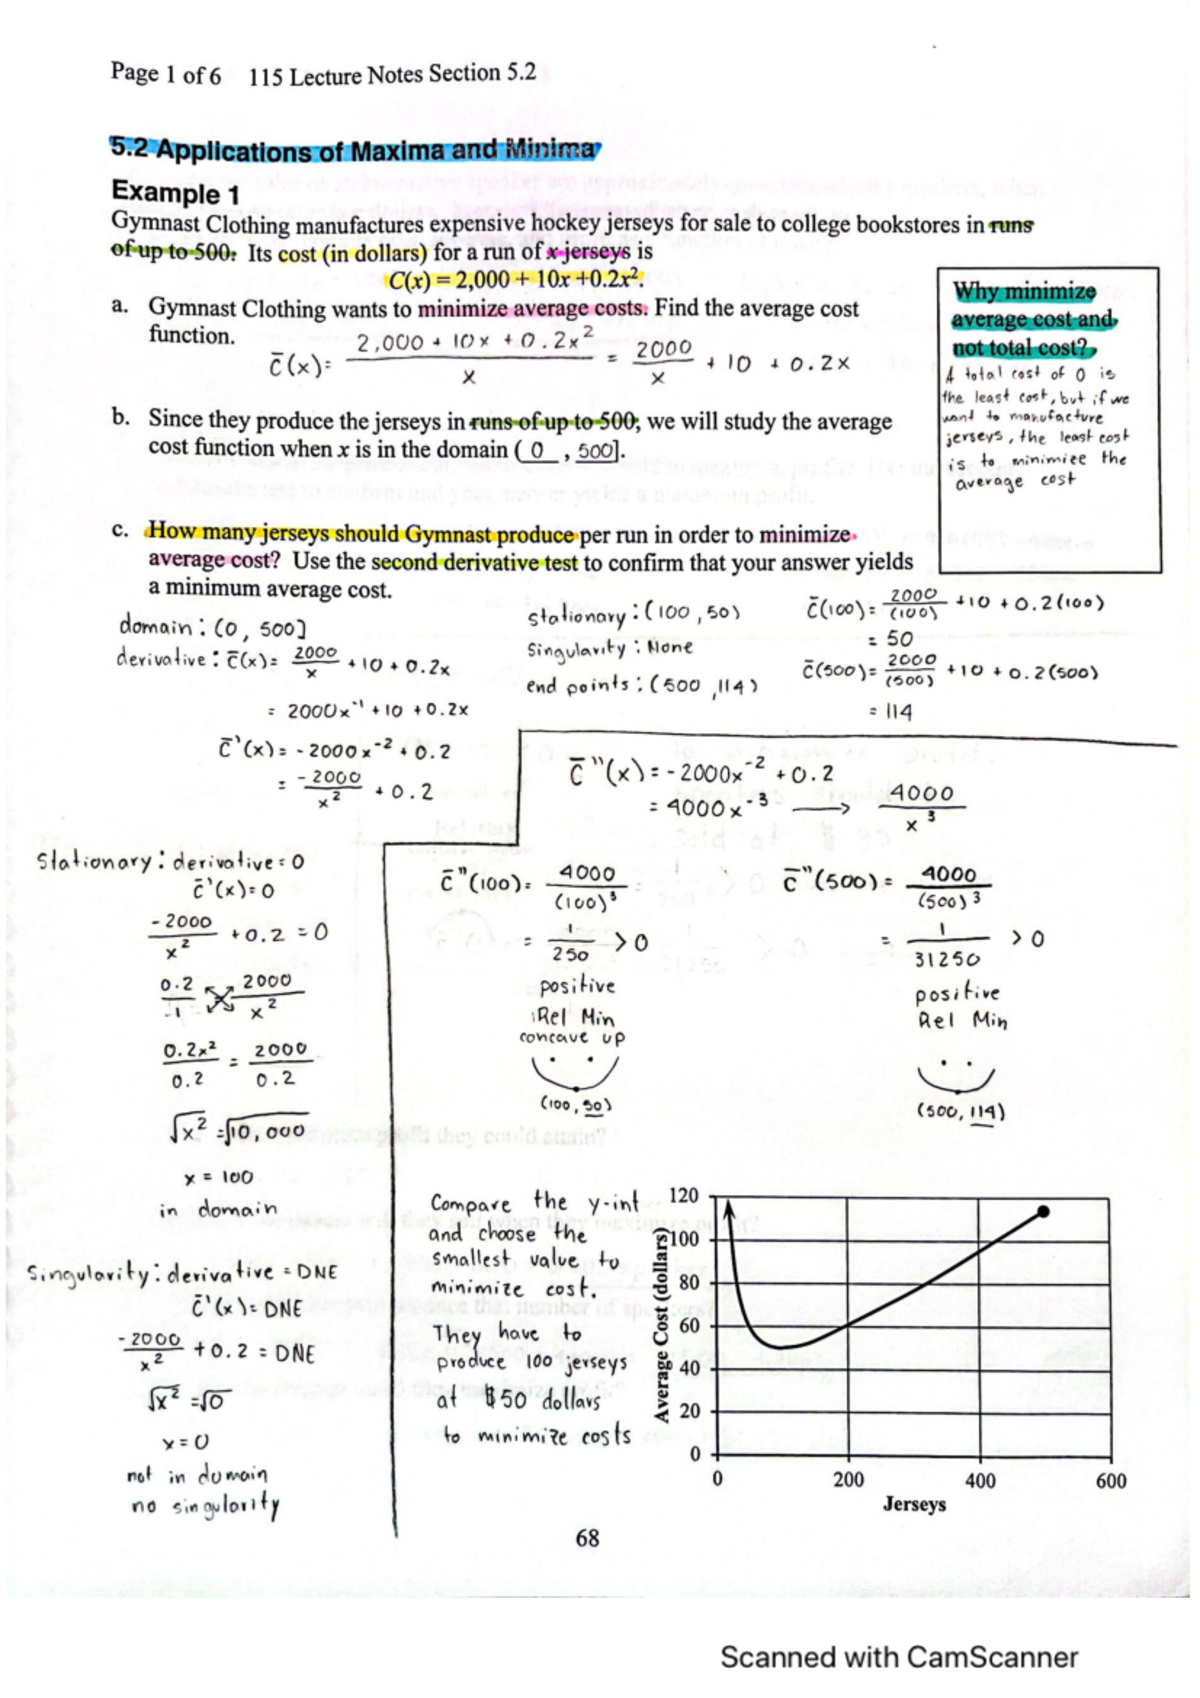 Page 1 of 6 115 Lecture Notes Section 5.2
5.2 Applications of Maxima and Minima
Example 1
Gymnast Clothing manufactures expensive hockey jerseys for sale to college bookstores in runs
of up to 500. Its cost (in dollars) for a run of x jerseys is
C(x) = 2,000 + 10x + 0.2x².
a. Gymnast Clothing wants to minimize average costs. Find the average cost
function.
C̅(x) = (2,000 + 10x + 0.2x²)/x = 2000/x + 10 + 0.2x
b. Since they produce the jerseys in runs of up to 500, we will study the average
cost function when x is in the domain ( 0 , 500].
Why minimize
average cost and
not total cost?
A total cost of 0 is
the least cost, but if we
want to manufacture
jerseys, the least cost
is to minimize the
average cost
c. How many jerseys should Gymnast produce per run in order to minimize
average cost? Use the second derivative test to confirm that your answer yields
a minimum average cost.
domain: (0, 500]
derivative: C̅(x) = 2000/x + 10 + 0.2x
= 2000x⁻¹ + 10 + 0.2x
C̅'(x) = -2000x⁻² + 0.2
= -2000/x² + 0.2
stationary: (100, 50)
singularity: None
end points: (500, 114)
C̅(100) = 2000/(100) + 10 + 0.2(100)
= 50
C̅(500) = 2000/(500) + 10 + 0.2(500)
= 114
Stationary: derivative = 0
C̅'(x) = 0
-2000/x² + 0.2 = 0
0.2/1 2000/x²
0.2x²/0.2 = 2000/0.2
√x² = √10,000
x = 100
in domain
Singularity: derivative = DNE
C̅'(x) = DNE
-2000/x² + 0.2 = DNE
√x² = √0
x = 0
not in domain
no singularity
C̅"(x) = -2000x⁻² + 0.2
= 4000x⁻³ → 4000/x³
C̅"(100) = 4000/(100)³
= 1/250 > 0
positive
Rel Min
concave up
(100, 50)
C̅"(500) = 4000/(500)³
= 1/31250 > 0
positive
Rel Min
(500, 114)
Compare the y-int
and choose the
smallest value to
minimize cost.
They have to
produce 100 jerseys
at $50 dollars
to minimize costs
Average Cost (dollars)
120
100
80
60
40
20
0
0 200 400 600
Jerseys
68
Scanned with CamScanner